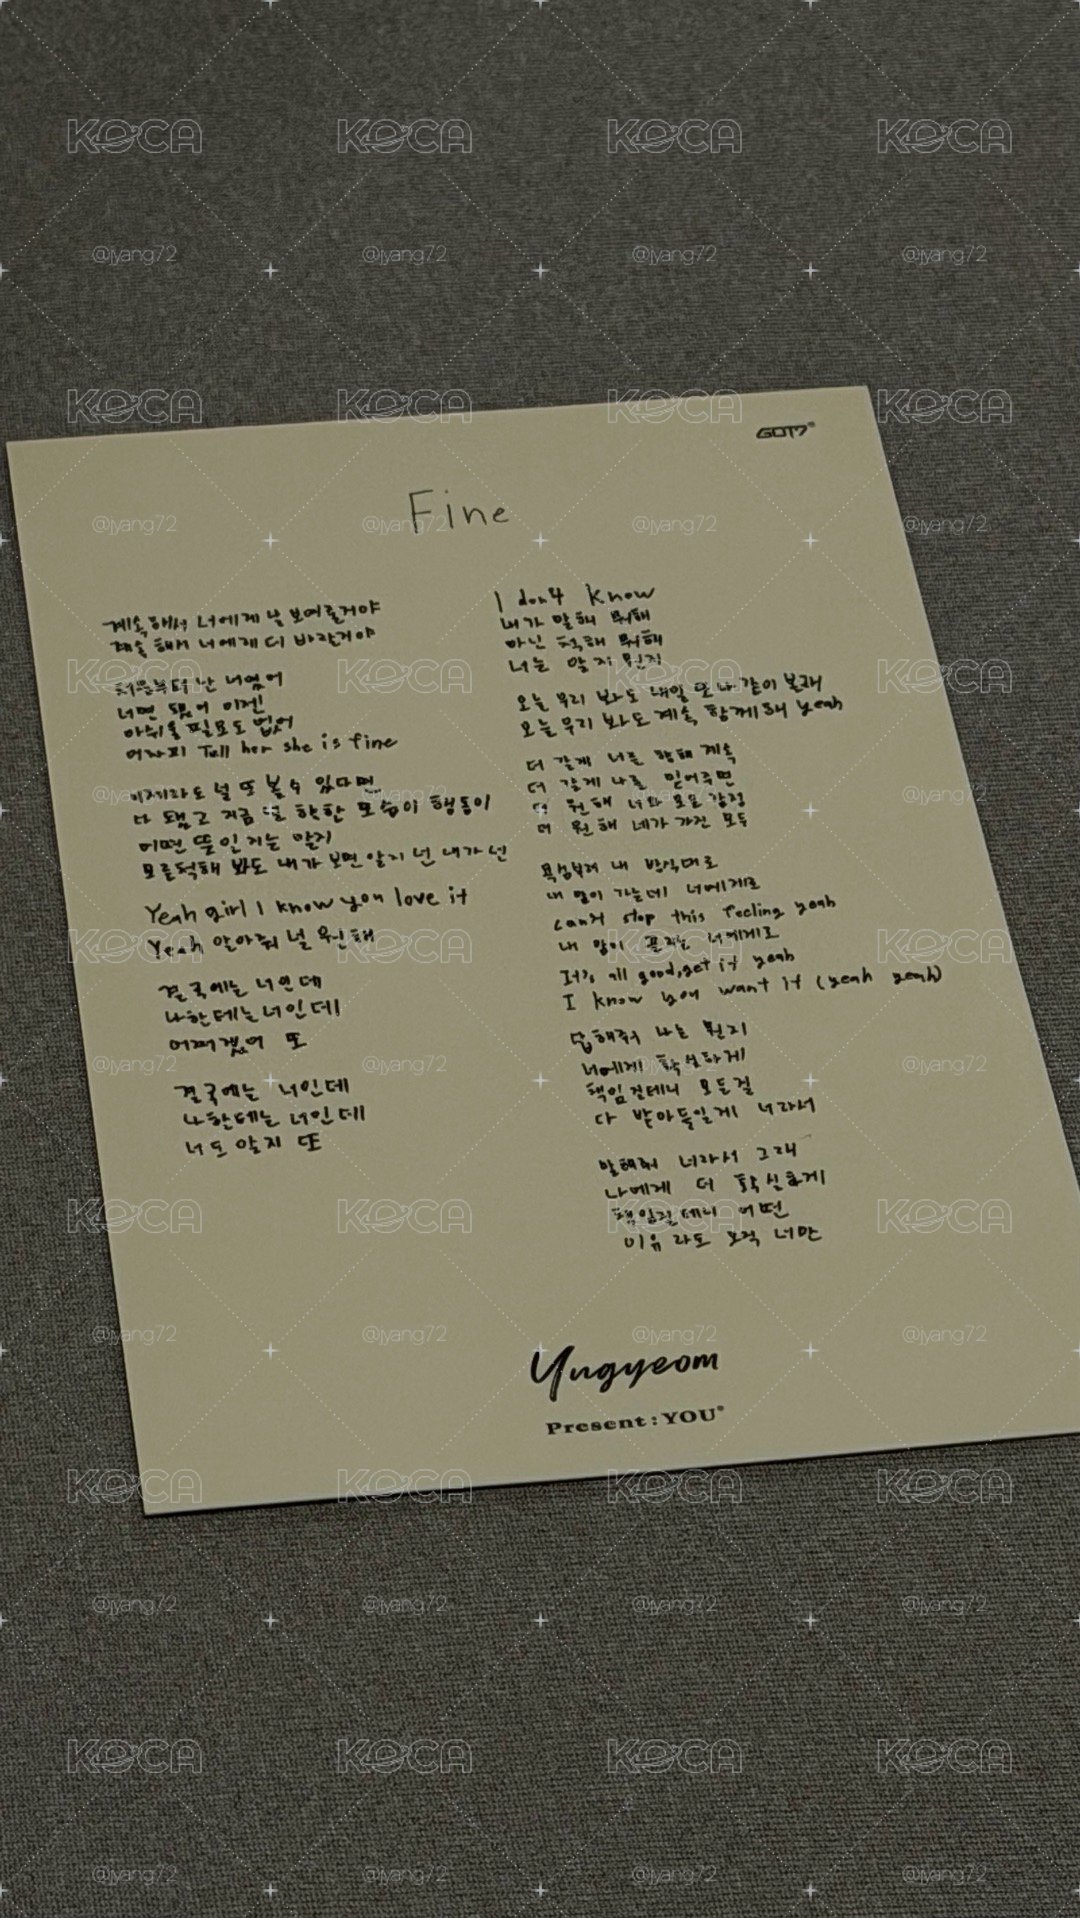 GOT7
Fine
계속해서 너에게 날 보여줄거야
계속 해서 너에게 더 바랄거야
처음부터 난 너였어
너면 됐어 이젠
아쉬울 필요도 없어
어차피 Tell her she is fine
이제라도 널 또 볼 수 있다면
다 됐고 지금 널 향한 모습이 행동이
어떤 뜻인지는 알지
모른척해 봐도 내가 보면 알지 넌 내가 넌
Yeah girl I know you love it
Yeah 알아줘 널 원해
결국에는 너인데
나한테는 너인데
어쩌겠어 또
결국에는 너인데
나한테는 너인데
너도 알지 또
I don't know
내가 말해 뭐해
아닌 척해 뭐해
너는 알지 뭔지
오늘 우리 봐도 내일 또 나 같이 볼래
오늘 우리 봐도 계속 함께해 yeah
더 갈게 너를 향해 계속
더 갈게 나를 믿어주면
더 원해 너의 모든 감정
더 원해 네가 가진 모두
욕심부려 내 방식대로
내 맘이 가는데 너에게로
can't stop this feeling yeah
내 맘이 끌리는 너에게로
It's all good, get it yeah
I know you want it (yeah yeah)
답해줘 나는 뭔지
너에게 확실하게
책임질테니 모든걸
다 받아들일게 너라서
말해줘 너라서 그래
나에게 더 확실하게
책임질테니 어떤
이유라도 오직 너만
Yugyeom
Present : YOU
KOCA
@jyang72